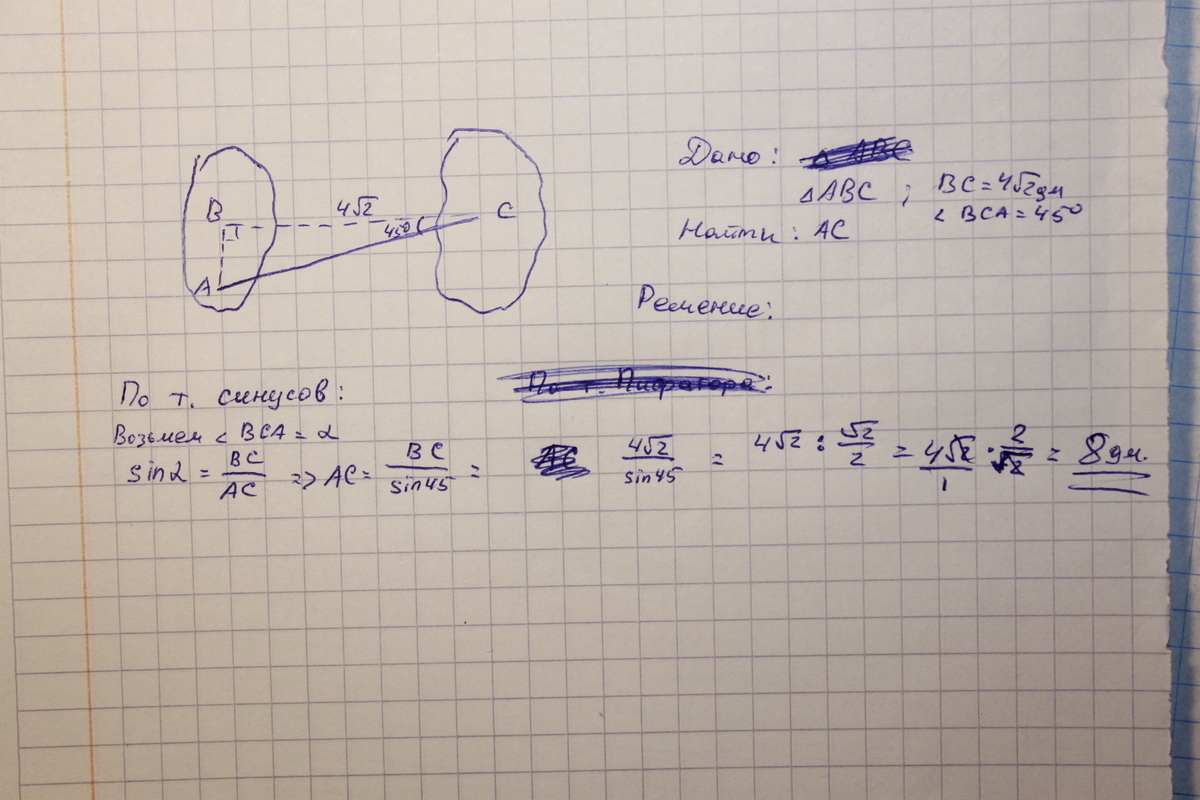 B
4√2
C
45°
A
Дано:
△ABC ; BC = 4√2 дм
< BCA = 45°
Найти: AC
Решение:
По т. Пифагора:
По т. синусов:
Возьмем < BCA = α
sin α = BC/AC => AC = BC/sin45 = 4√2/sin45 = 4√2 : √2/2 = 4√2/1 · 2/√2 = 8 дм.